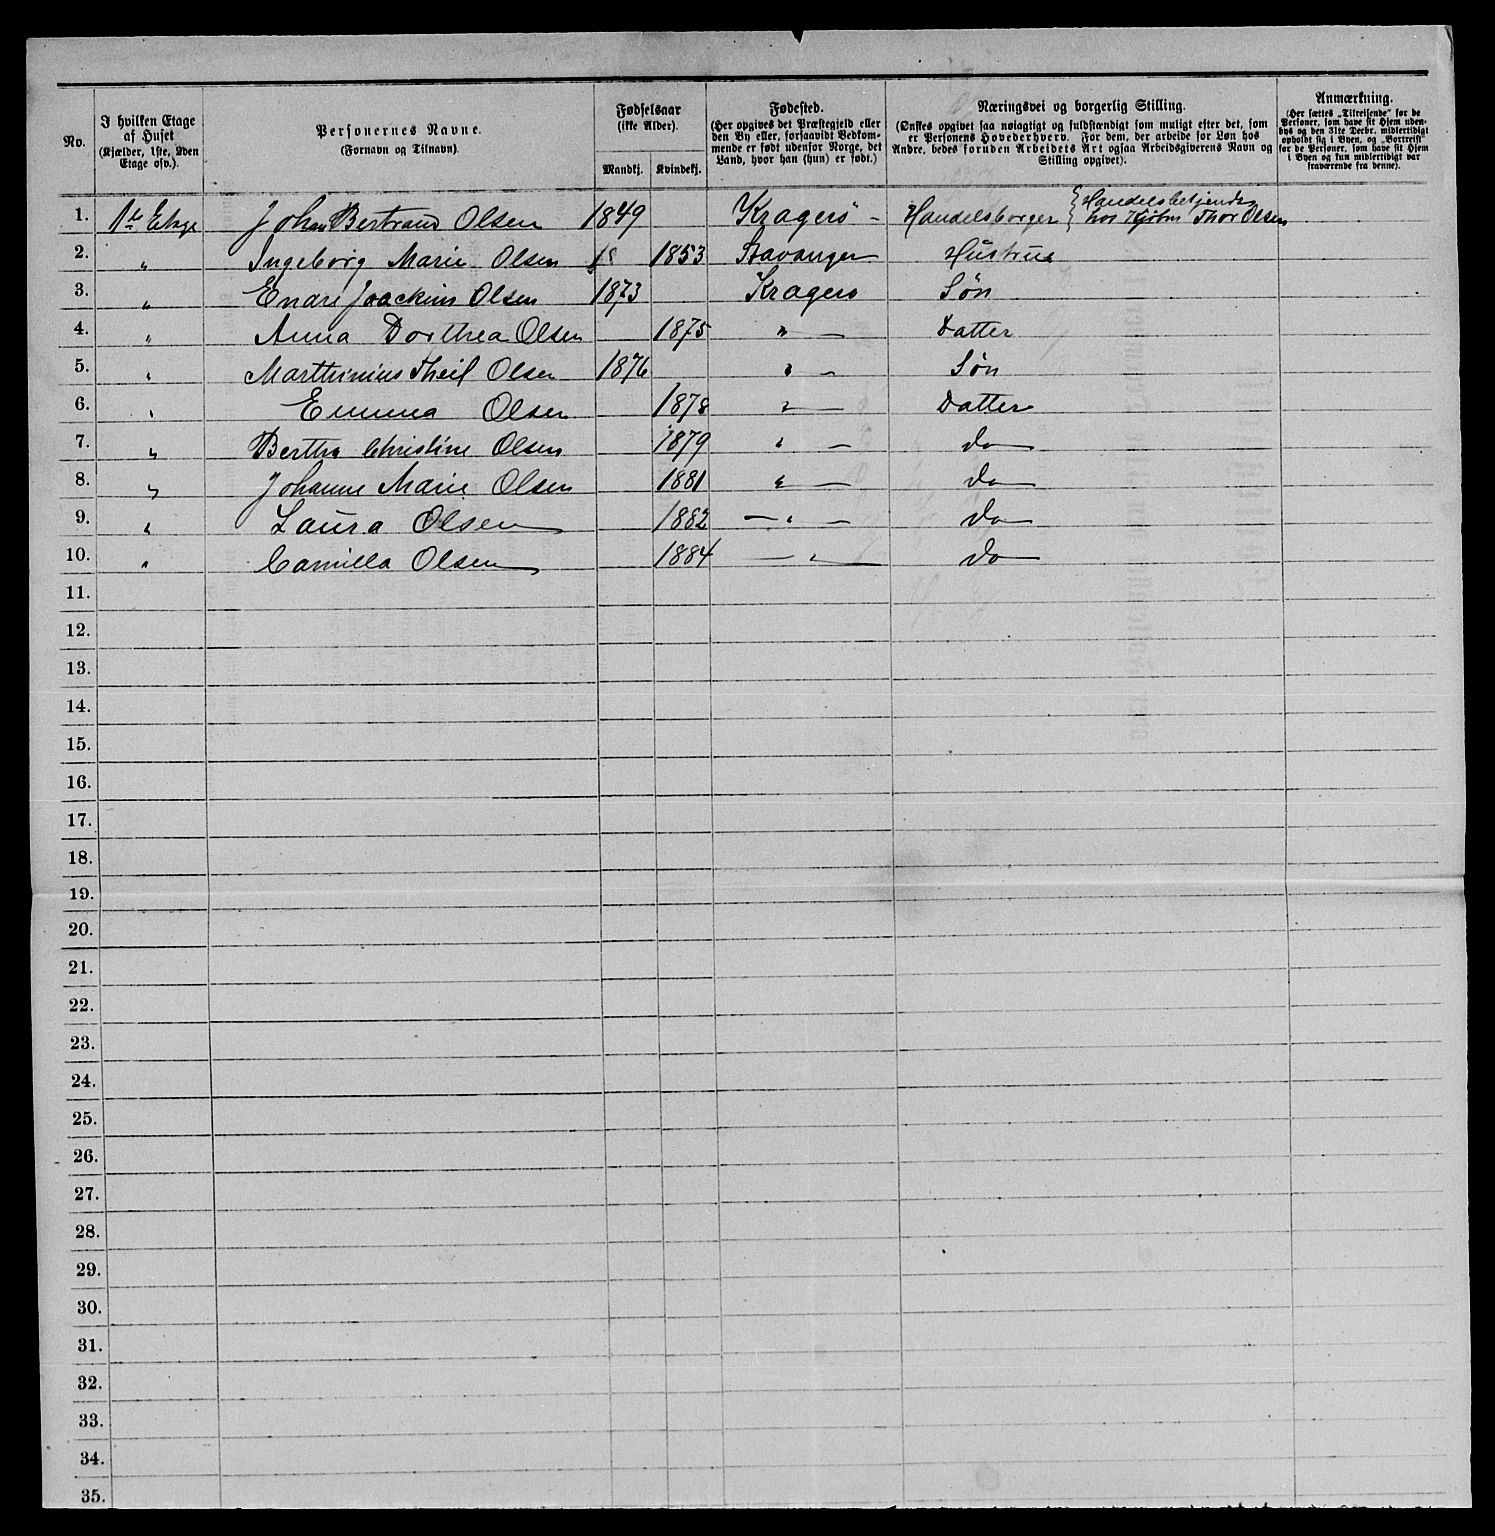 No.
I hvilken Etage
af Huset
(Kjælder, 1ste, 2den
Etage osv.).
Personernes Navne.
(Fornavn og Tilnavn).
Fødselsaar
(ikke Alder).
Mandkj. Kvindekj.
Fødested.
(Her opgives det Præstegjeld eller
den By eller, forsaavidt Vedkom-
mende er født udenfor Norge, det
Land, hvor han (hun) er født.)
Næringsvei og borgerlig Stilling.
(Ønskes opgivet saa nøiagtigt og fuldstændigt som muligt efter det, som
er Personens Hovederhverv. For dem, der arbeide for Løn hos
Andre, bedes foruden Arbeidets Art ogsaa Arbeidsgiverens Navn og
Stilling opgivet).
Anmærkning.
(Her sættes „Tilreisende“ for de
Personer, som have sit Hjem uden-
bys og den 31te Decbr. midlertidigt
opholdt sig i Byen, og „Bortreist“
for de Personer, som have sit Hjem
i Byen og kun midlertidigt var
fraværende fra denne).
1. 1ste Etage Johan Bertrand Olsen 1849 Kragerø - Handelsborger { Handelsbetjend hos Thor Olsen
2. " Ingeborg Marie Olsen 18 1853 Stavanger Hustrue
3. " Enare Joackim Olsen 1873 Kragerø Søn
4. " Anna Dorthea Olsen 1875 " — Datter
5. " Marthinius Theil Olsen 1876 " — Søn
6. " Emma Olsen 1878 " — Datter
7. " Bertha Christine Olsen 1879 " — do
8. " Johanne Marie Olsen 1881 " — do
9. " Laura Olsen 1882 — " — do
10. " Camilla Olsen 1884 — " — do
11.
12.
13.
14.
15.
16.
17.
18.
19.
20.
21.
22.
23.
24.
25.
26.
27.
28.
29.
30.
31.
32.
33.
34.
35.